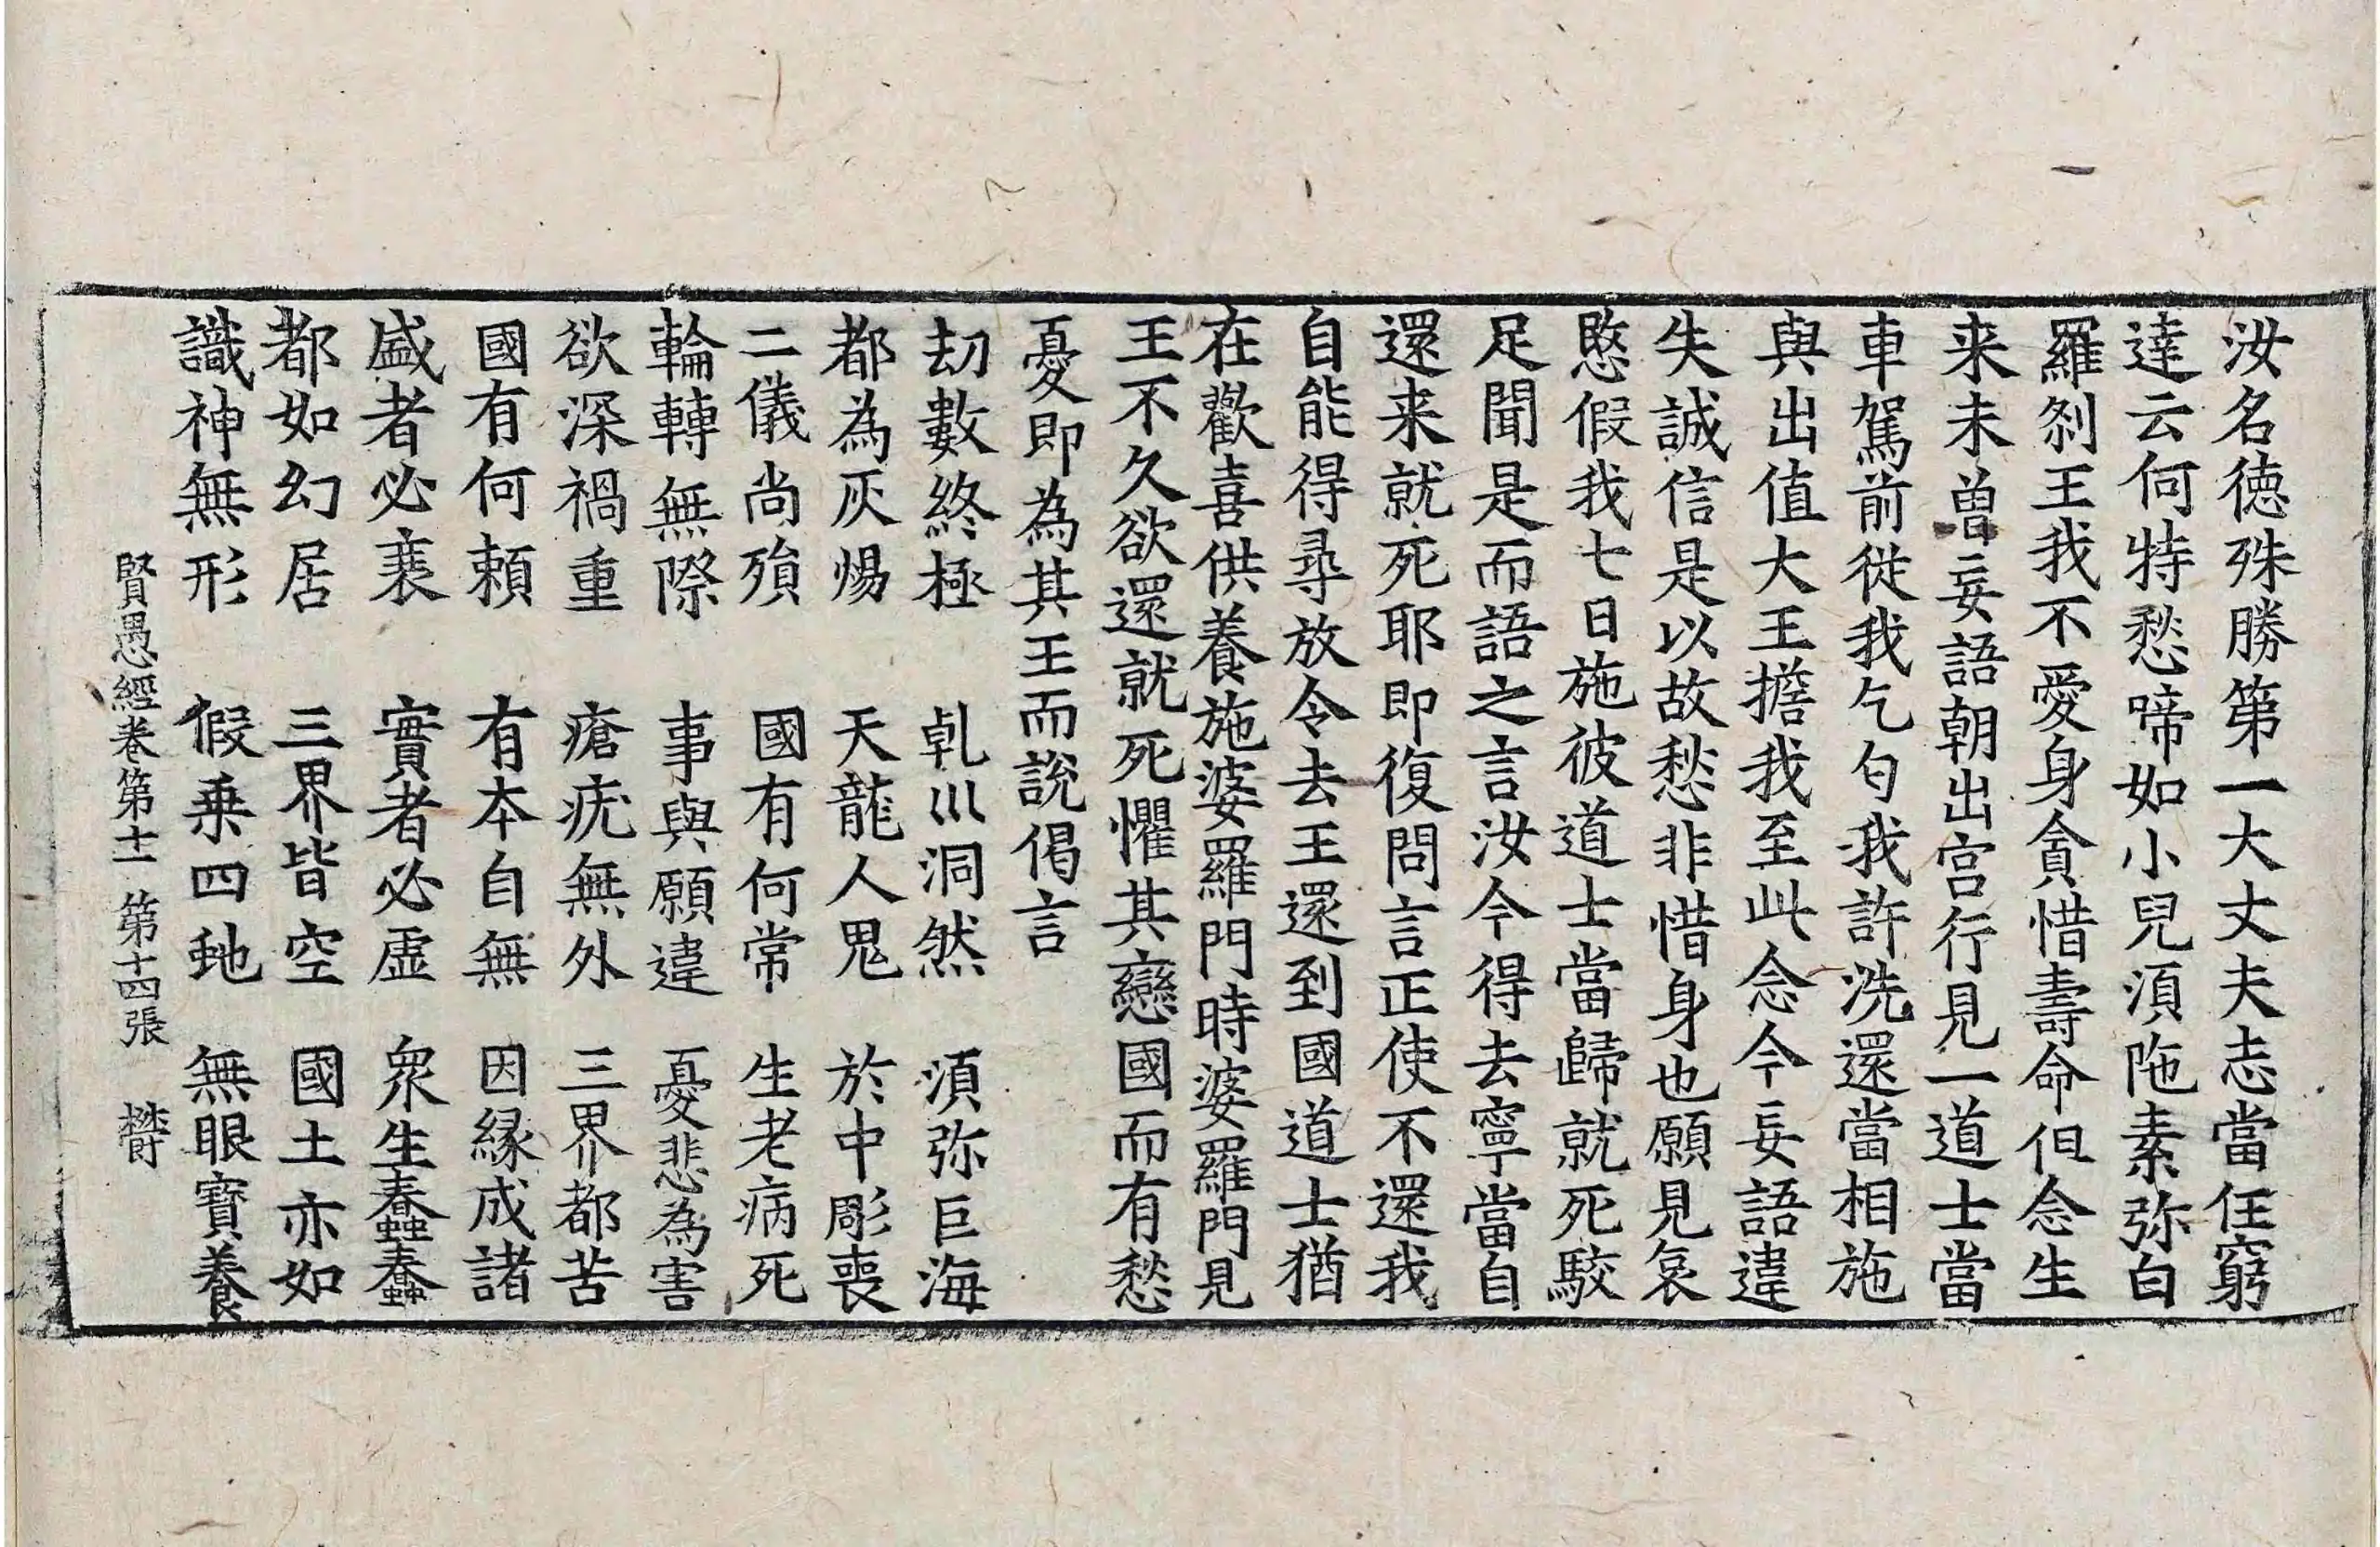 汝名徳殊勝第一大丈夫志當任窮
達云何特愁啼如小兒湏陁素弥白
羅刹王我不愛身貪惜壽命但念生
来未曽妄語朝出宫行見一道士當
車駕前從我乞匃我許洗還當相施
與出值大王擔我至此念今妄語違
失誠信是以故愁非惜身也願見哀
愍假我七日施彼道士當歸就死駮
足聞是而語之言汝今得去寧當自
還来就死耶即復問言正使不還我
自能得尋放令去王還到國道士猶
在歡喜供養施婆羅門時婆羅門見
王不久欲還就死懼其戀國而有愁
憂即為其王而說偈言
劫數終極　乹川洞然　湏弥巨海
都為灰煬　天龍人鬼　於中彫喪
二儀尚殞　國有何常　生老病死
輪轉無際　事與願違　憂悲為害
欲深禍重　瘡疣無外　三界都苦
國有何頼　有本自無　因緣成諸
盛者必衰　實者必虛　衆生蠢蠢
都如幻居　三界皆空　國土亦如
識神無形　假乗四虵　無眼寶養
賢愚經卷第十一　第十四張　欝